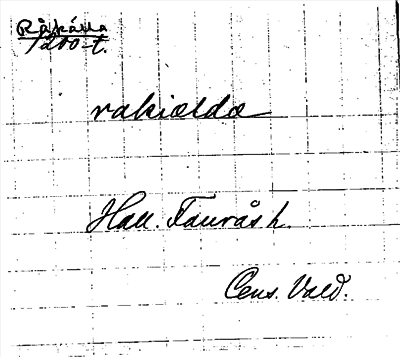 Råkälla
1200-t.
rakiældæ
Hall. Faurås h.
Cens. Vald.